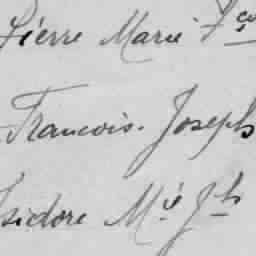 Pierre Marie Fçois
Francois. Joseph
Isidore Mié Jh